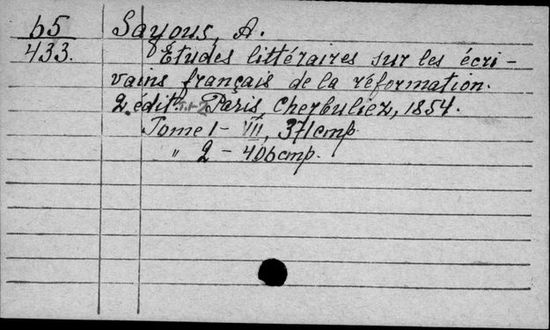 65 Sayous, A.
433. Etudes littéraires sur les écri-
vains français de la réformation.
2 édit. T.1-2 Paris, Cherbuliez, 1854.
Tome 1 – VII, 371 стр.
„ 2 – 406 стр.